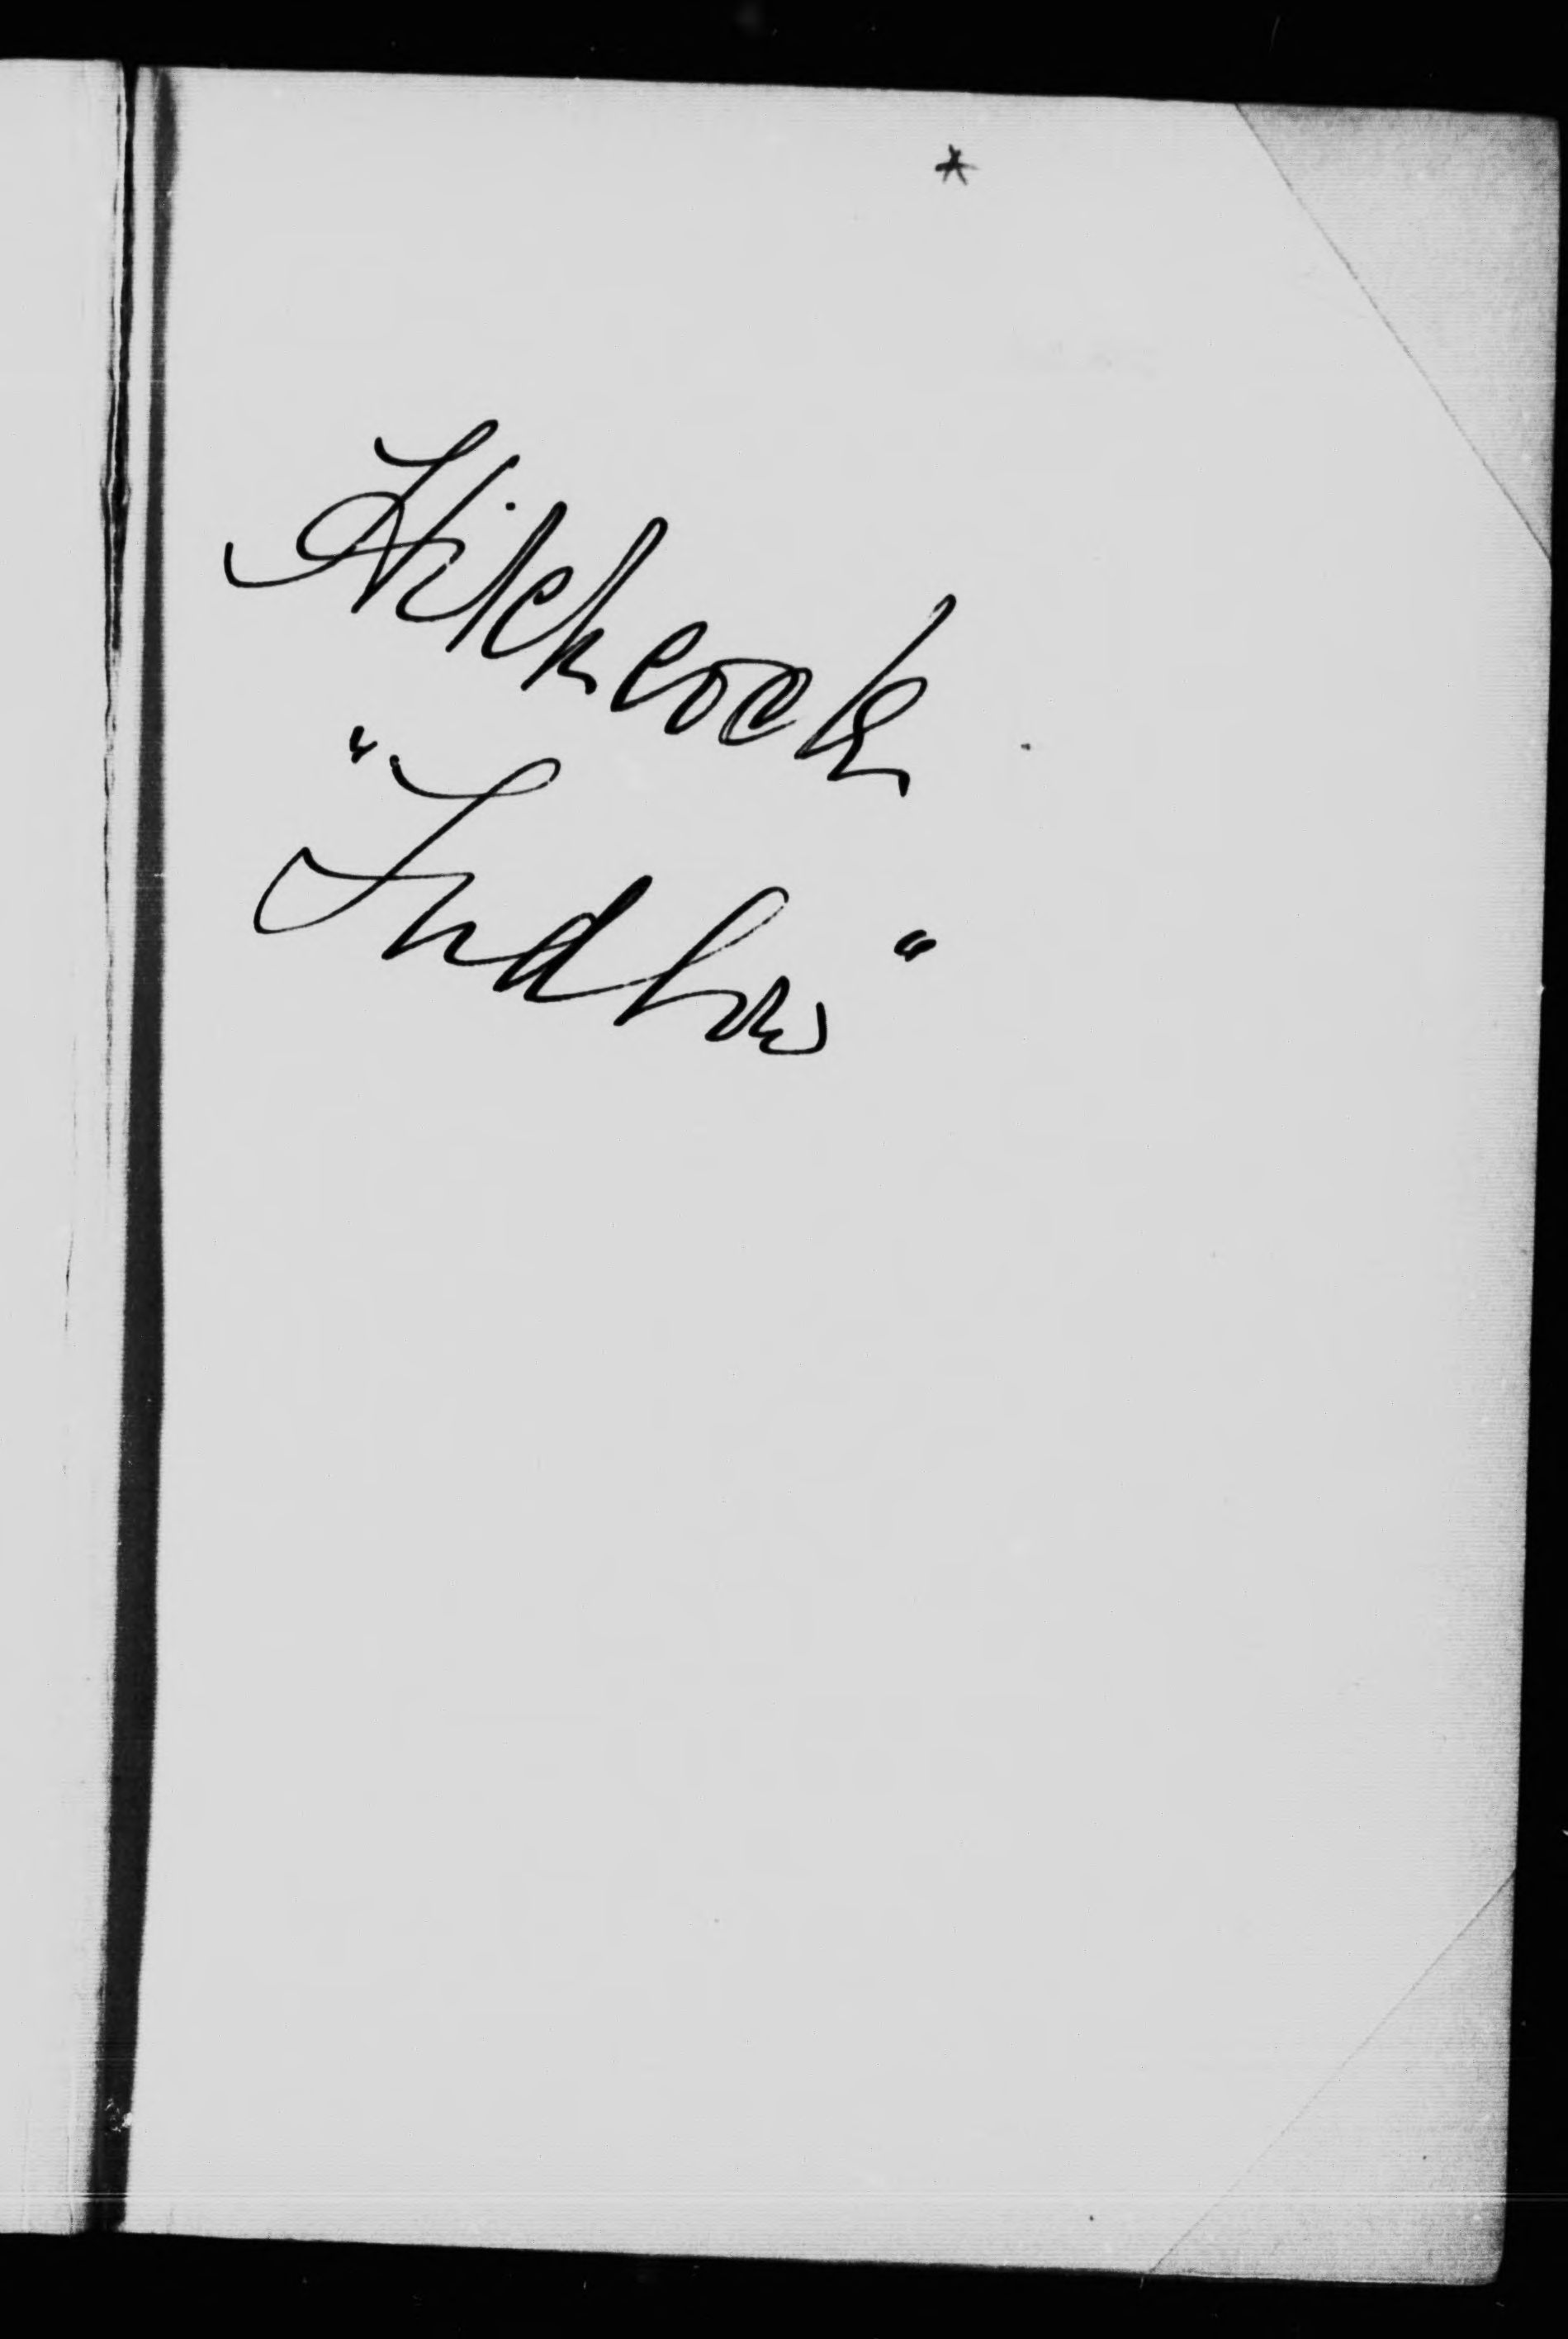 *
Hitchcock
"Ind Law"